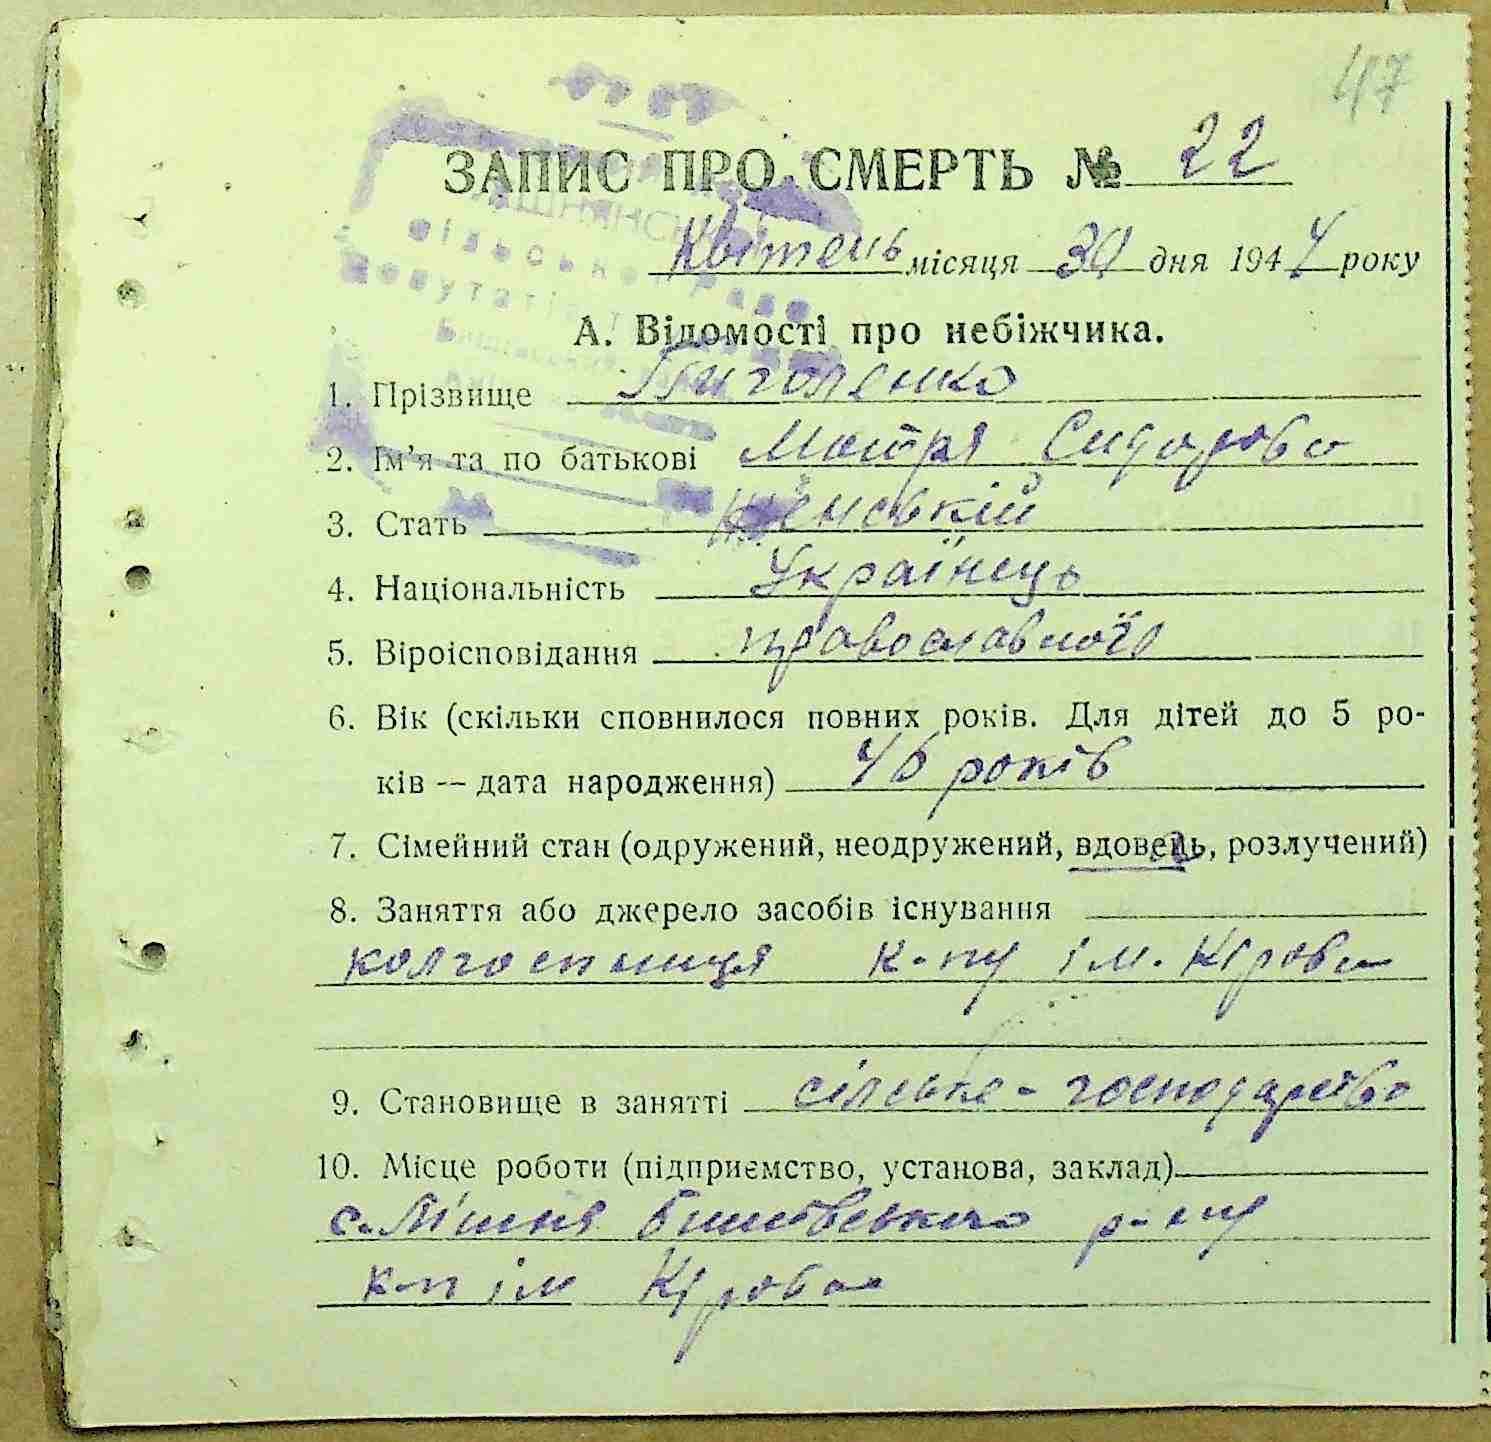 47
ЗАПИС ПРО СМЕРТЬ № 22
Квітень місяця 30 дня 1944 року
А. Відомості про небіжчика.
1. Прізвище Пиголенко
2. Ім'я та по батькові Мотря Сидорова
3. Стать Женській
4. Національність Українець
5. Віроісповідання православної
6. Вік (скільки сповнилося повних років. Для дітей до 5 ро-
ків — дата народження) 46 років
7. Сімейний стан (одружений, неодружений, вдовець, розлучений)
8. Заняття або джерело засобів існування
колгоспниця к-пу ім. Кірова
9. Становище в занятті сільське-господарство
10. Місце роботи (підприємство, установа, заклад)
с. Лішня Бишівського р-ну
к-п ім Кірова